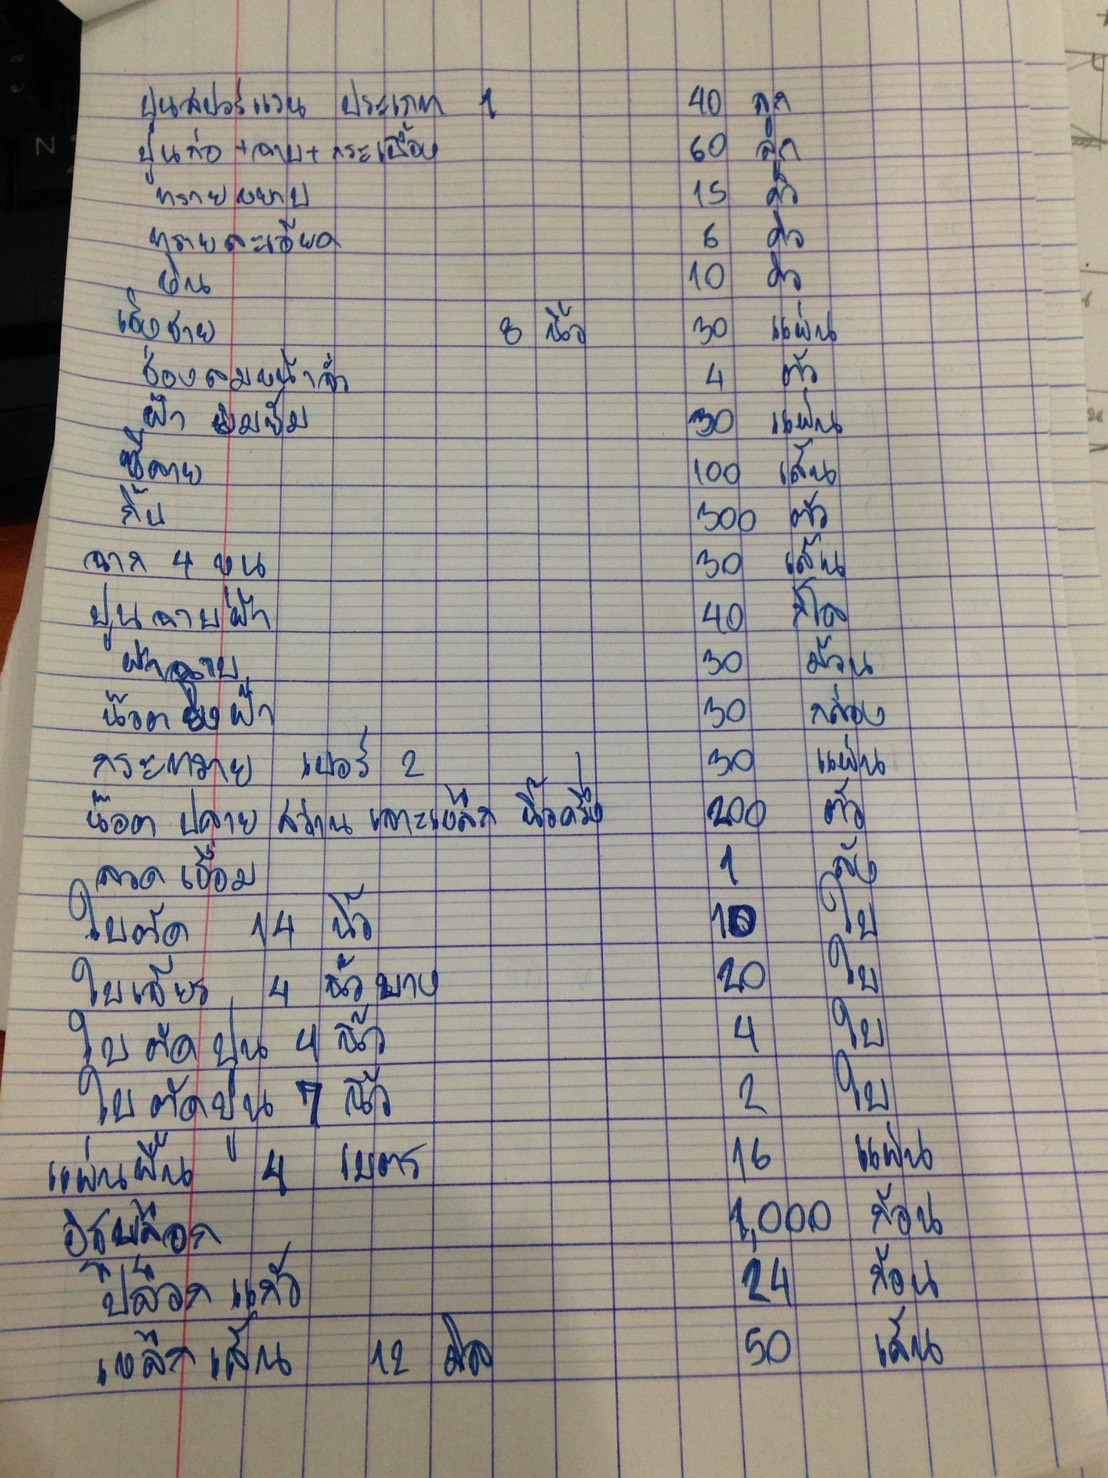 ปูนสปอร์แวน ประเภท 1 40 ลูก
ปูนก่อ+ฉาบ+กระเบื้อง 60 ลูก
ทรายหยาบ 15 คิว
ทรายละเอียด 6 คิว
หิน 10 คิว
เชิงชาย 8 นิ้ว 30 แผ่น
ช่องลมหน้าจั่ว 4 ตัว
ฝ้า ยิมซั่ม 30 แผ่น
ซีลาย 100 เส้น
กิ๊บ 300 ตัว
ฉาก 4 หน 30 เส้น
ปูนฉาบฝ้า 40 กิโล
ผ้าฉาบ 30 ม้วน
น๊อตยิงฝ้า 30 กล่อง
กระดาษทราย เบอร์ 2 30 แผ่น
น๊อต ปลาย สว่าน เจาะเหล็ก นิ้วครึ่ง 200 ตัว
ลวดเชื่อม 1 ลัง
ใบตัด 14 นิ้ว 10 ใบ
ใบเจียร 4 นิ้ว บาง 20 ใบ
ใบตัดปูน 4 นิ้ว 4 ใบ
ใบตัดปูน 7 นิ้ว 2 ใบ
แผ่นพื้น 4 เมตร 16 แผ่น
อิฐบล๊อก 1,000 ก้อน
บล๊อกแก้ว 24 ก้อน
เหล็กเส้น 12 มิล 50 เส้น